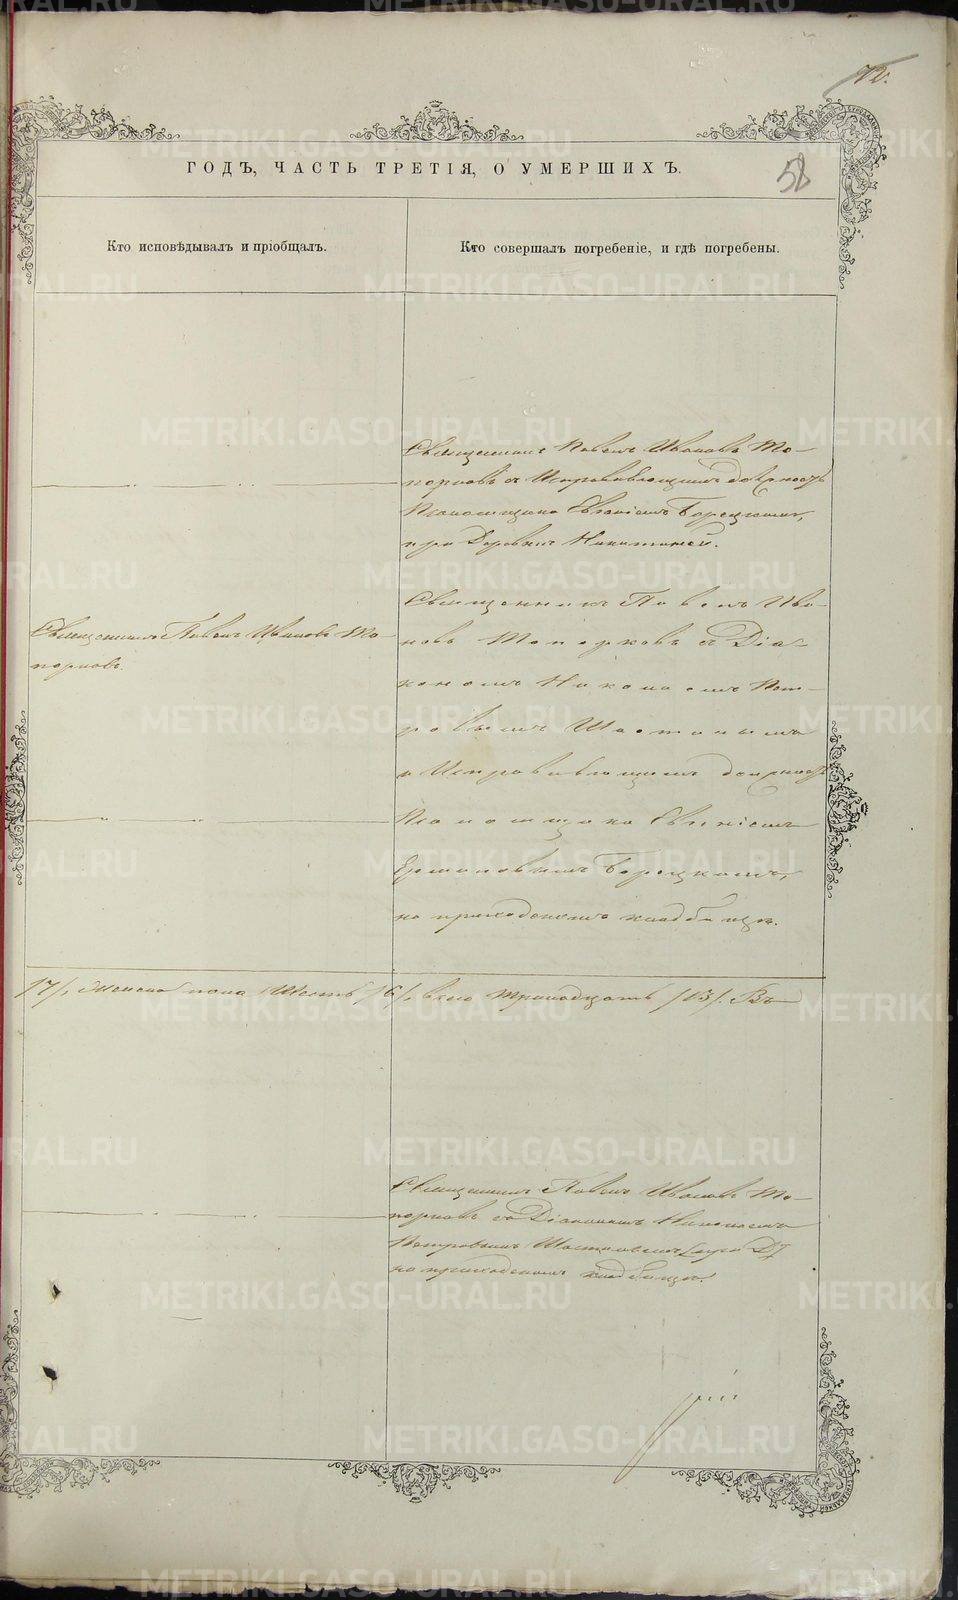 72.
ГОДЪ, ЧАСТЬ ТРЕТІЯ, О УМЕРШИХЪ.
58
Кто исповѣдывалъ и пріобщалъ.
Кто совершалъ погребеніе, и гдѣ погребены.
Священникъ Павелъ Ивановъ То-
порковъ съ Исправляющимъ должность
Псаломщика Евгеніемъ Борецкимъ,
при Деревнѣ Никитиной.
Священникъ Павелъ Ивановъ То-
порковъ.
Священникъ Павелъ Ива-
новъ Топорковъ съ Діа-
кономъ Николаемъ Пет-
ровымъ
и Исправляющимъ должность
Псаломщика Евгеніемъ
Борецкимъ,
на приходскомъ кладбищѣ.
/7/, женска пола шесть /6/, всего тринадцать /13/. Въ
Священникъ Павелъ Ивановъ То-
порковъ съ Діакономъ Николаемъ
Петровымъ
на приходскомъ кладбищѣ.
METRIKI.GASO-URAL.RU